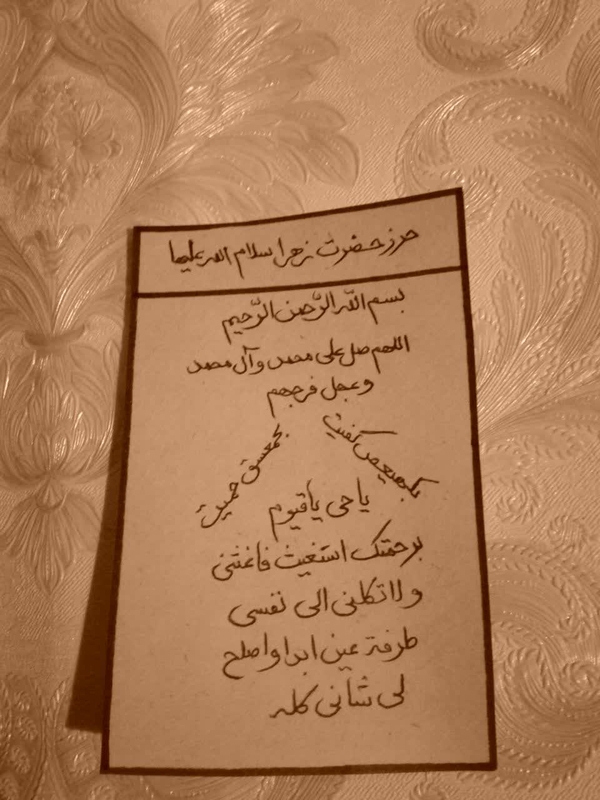 حرز حضرت زهرا سلام الله علیها
بسم الله الرّحمن الرّحیم
اللهم صل علی محمد وآل محمد
وعجل فرجهم
بکهیعص کفیت
بحمعسق حمیت
یا حی یا قیوم
برحمتک استغیث فاغثنی
ولا تکلنی الی نفسی
طرفة عین ابدا واصلح
لی شانی کله